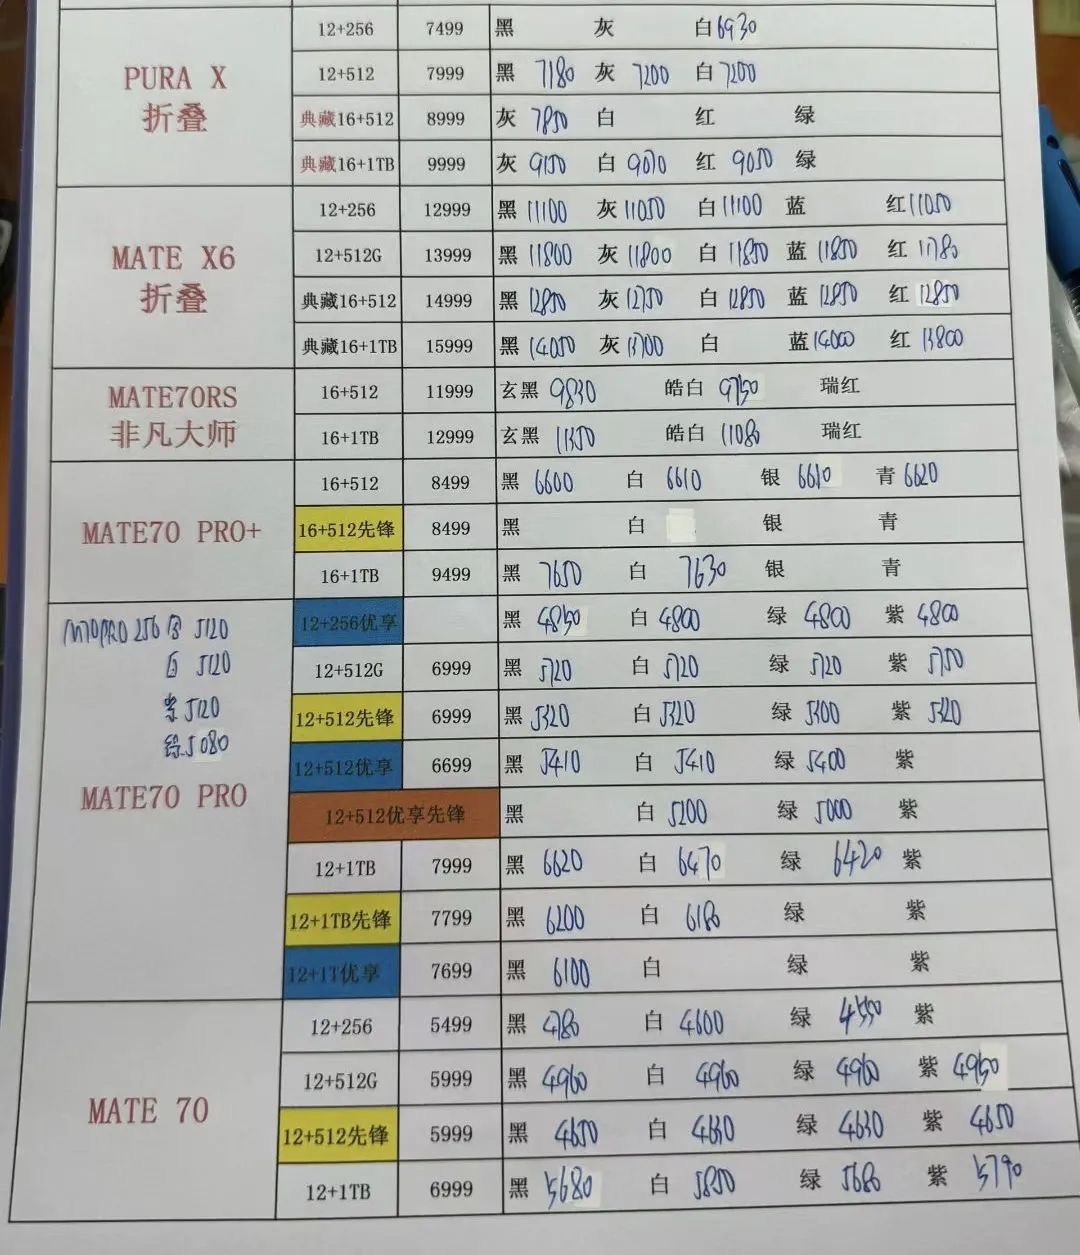 12+256 7499 黑 灰 白6930
PURA X
折叠
12+512 7999 黑 7180 灰 7200 白7200
典藏16+512 8999 灰 7850 白 红 绿
典藏16+1TB 9999 灰 9150 白 9070 红 9050 绿
MATE X6
折叠
12+256 12999 黑 11100 灰 11050 白 11100 蓝 红 11050
12+512G 13999 黑 11800 灰 11800 白 11850 蓝 11850 红 11780
典藏16+512 14999 黑 12850 灰 12750 白 12850 蓝 12850 红 12850
典藏16+1TB 15999 黑 14050 灰 13700 白 蓝 14000 红 13800
MATE70RS
非凡大师
16+512 11999 玄黑 9830 皓白 9750 瑞红
16+1TB 12999 玄黑 11350 皓白 11080 瑞红
MATE70 PRO+
16+512 8499 黑 6600 白 6610 银 6610 青 6620
16+512先锋 8499 黑 白 银 青
16+1TB 9499 黑 7650 白 7630 银 青
M70PRO 256 5120
白 5120
紫 5120
绿 5080
MATE70 PRO
12+256优享 黑 4850 白 4800 绿 4800 紫 4800
12+512G 6999 黑 5720 白 5720 绿 5720 紫 5750
12+512先锋 6999 黑 5320 白 5320 绿 5300 紫 5320
12+512优享 6699 黑 5410 白 5410 绿 5400 紫
12+512优享先锋 黑 白 5200 绿 5000 紫
12+1TB 7999 黑 6620 白 6470 绿 6420 紫
12+1TB先锋 7799 黑 6200 白 6180 绿 紫
12+1T优享 7699 黑 6100 白 绿 紫
MATE 70
12+256 5499 黑 4780 白 4600 绿 4550 紫
12+512G 5999 黑 4960 白 4960 绿 4960 紫 4950
12+512先锋 5999 黑 4650 白 4630 绿 4630 紫 4650
12+1TB 6999 黑 5680 白 5850 绿 5680 紫 5790